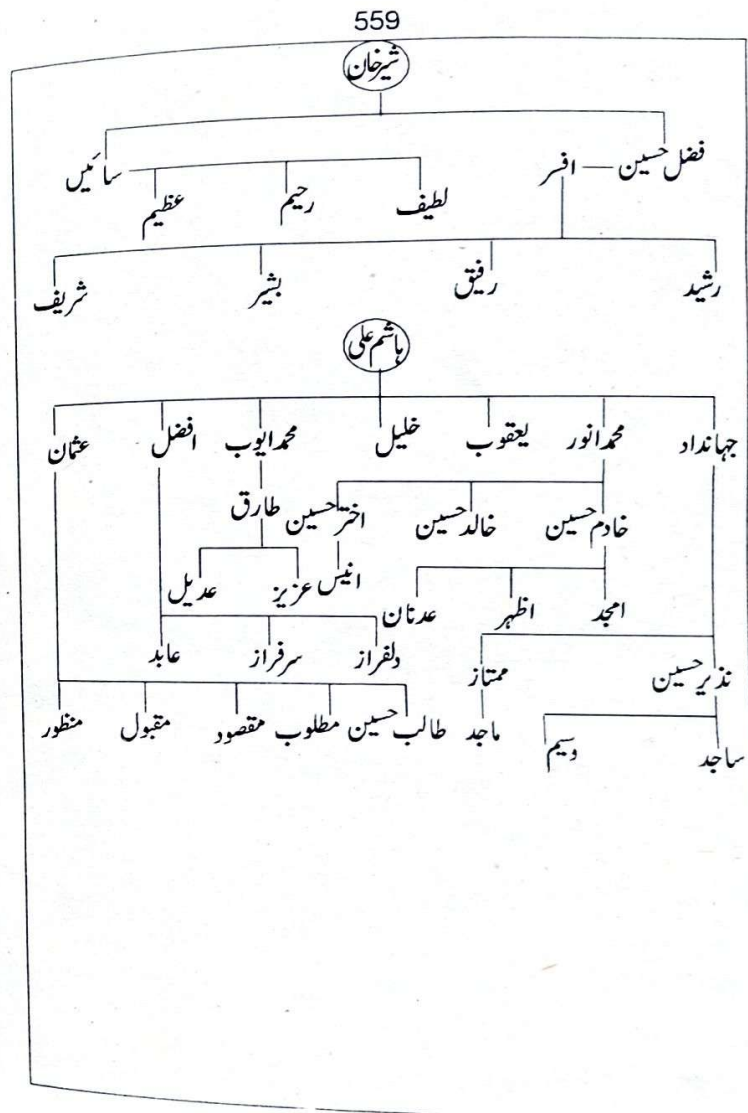 559
شیر خان
فضل حسین افسر سائیں
لطیف رحیم عظیم
رشید رفیق بشیر شریف
ہاشم علی
جہانداد محمد انور یعقوب خلیل محمد ایوب افضل عثمان
خادم حسین خالد حسین اختر حسین طارق
امجد اظہر عدنان انیس عزیز عدیل
نذیر حسین ممتاز دلفراز سرفراز عابد
ساجد وسیم ماجد طالب حسین مطلوب مقصود مقبول منظور